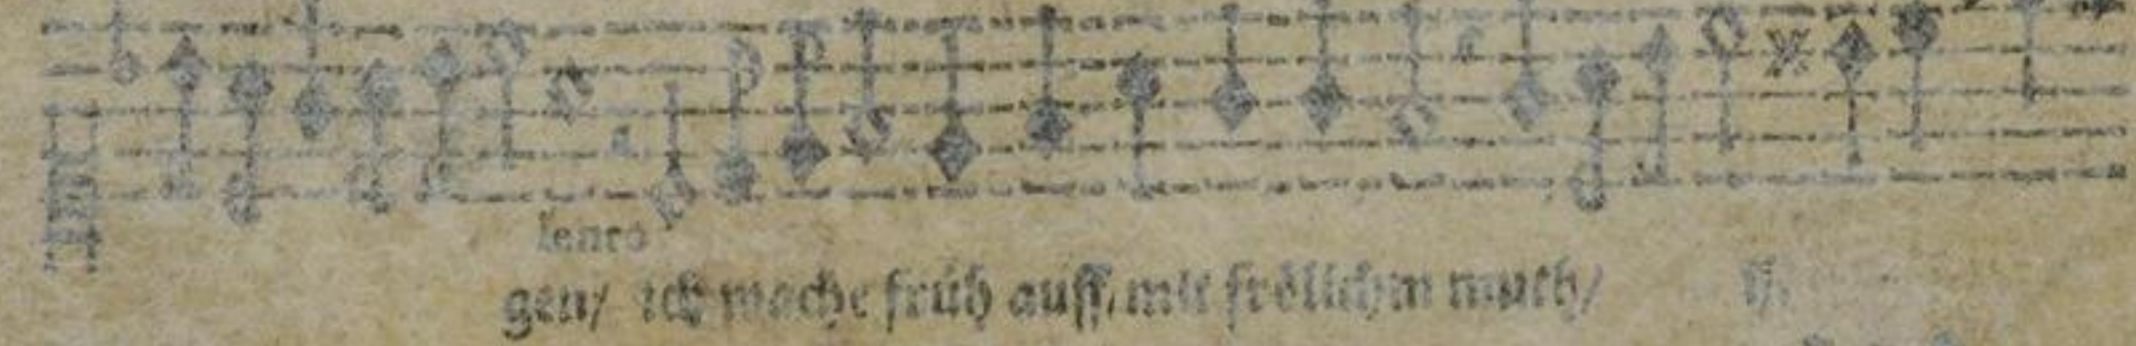 lento
gen/ ich wache früh auff, mit frölichm muth/ ij.